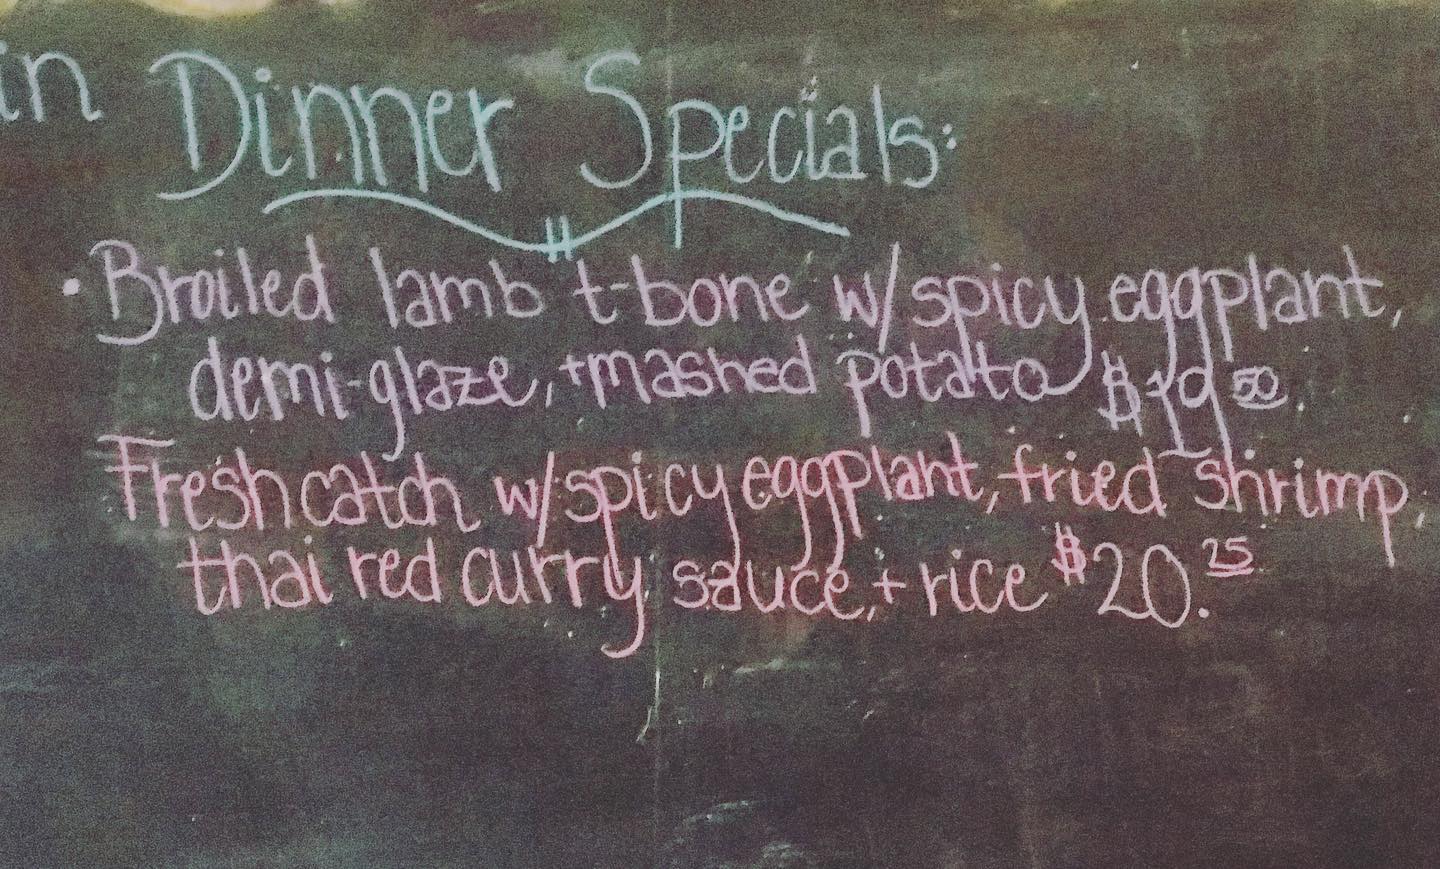 in Dinner Specials:
• Broiled lamb t-bone w/ spicy eggplant,
demi-glaze, + mashed potato $19.50
Fresh catch w/ spicy eggplant, fried shrimp,
thai red curry sauce, + rice $20.25